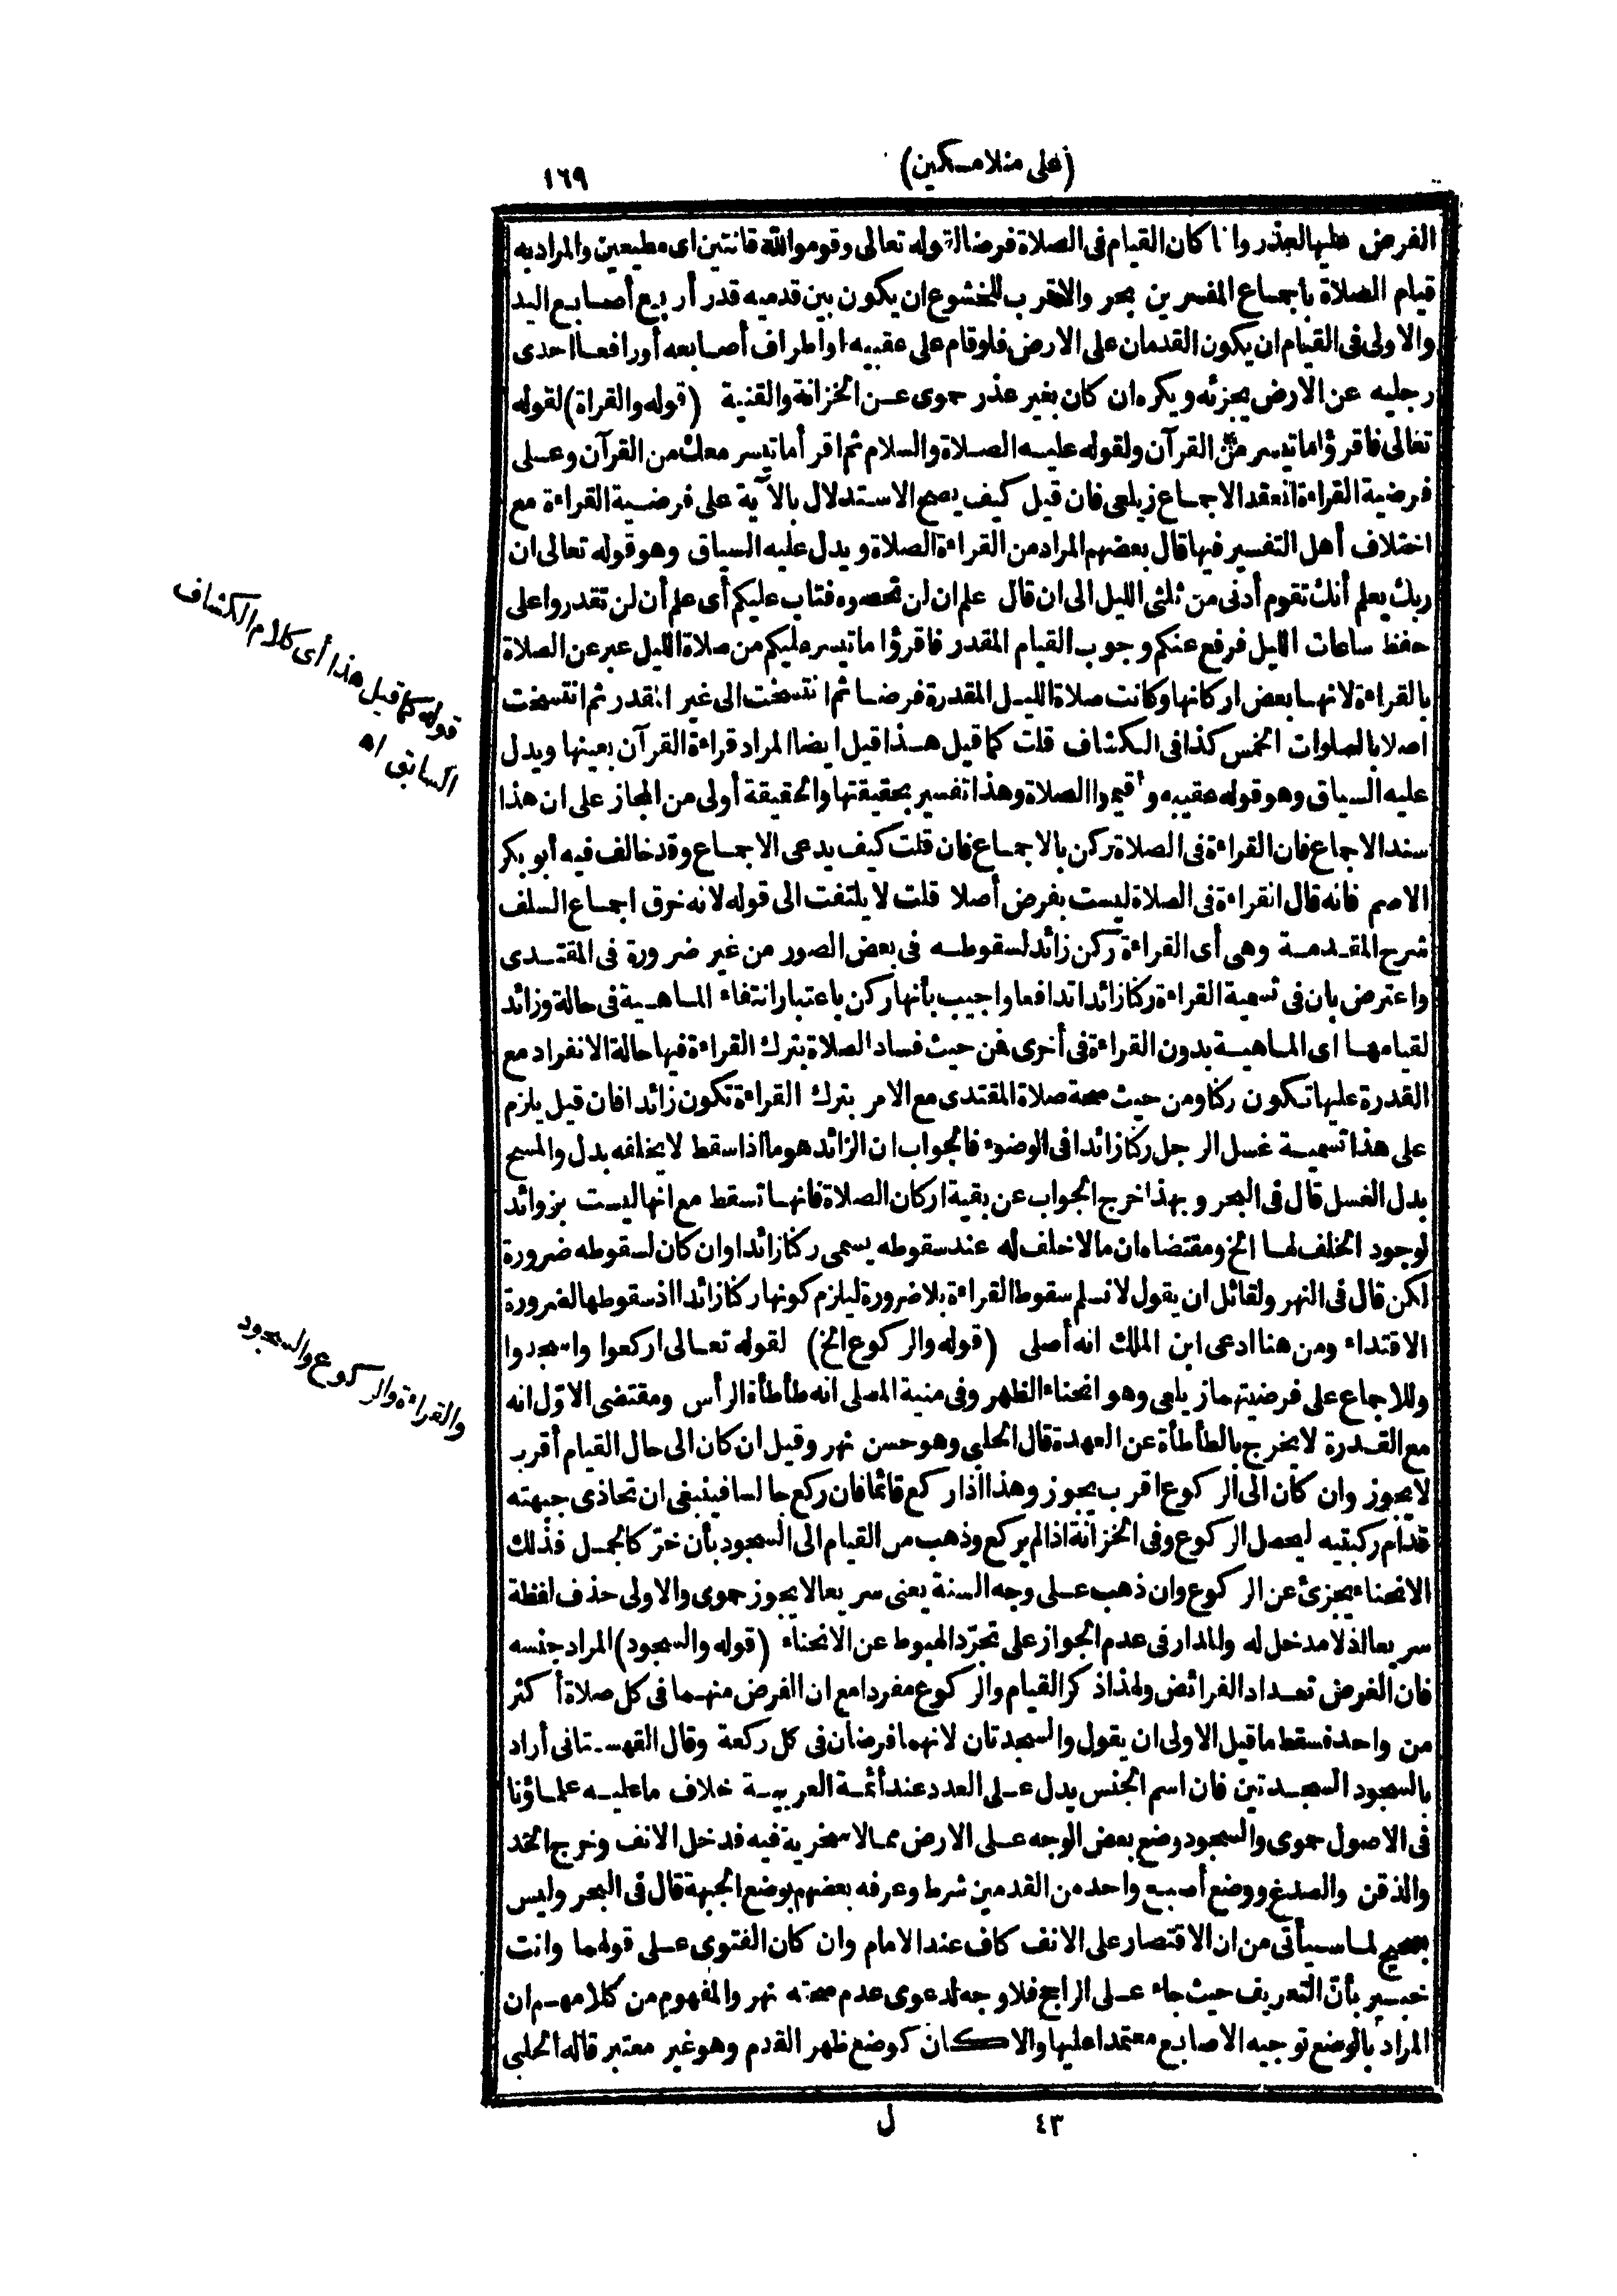 (على منلا مسكين)
١٦٩
الفرض عليها العذر وانما كان القيام فى الصلاة فرضا لقوله تعالى وقوموا لله قانتين اى مطيعين والمراد به
قيام الصلاة باجماع المفسرين بحر والاقرب للخشوع ان يكون بين قدميه قدر أربع أصابع اليد
والاولى فى القيام ان يكون القدمان على الارض فلو قام على عقبيه او اطراف أصابعه أو رافعا احدى
رجليه عن الارض يجزئه ويكره ان كان بغير عذر حموى عن الخزانة والقنية (قوله والقراة) لقوله
تعالى فاقرؤا ما تيسر من القرآن ولقوله عليه الصلاة والسلام ثم اقرأ ما تيسر معك من القرآن وعلى
فرضية القراءة انعقد الاجماع زيلعى فان قيل كيف يصح الاستدلال بالآية على فرضية القراءة مع
اختلاف أهل التفسير فيها قال بعضهم المراد من القراءة الصلاة ويدل عليه السياق وهو قوله تعالى ان
ربك يعلم أنك تقوم أدنى من ثلثى الليل الى ان قال علم ان لن تحصوه فتاب عليكم أى علم أن لن تقدروا على
حفظ ساعات الليل فرفع عنكم وجوب القيام المقدر فاقرؤا ما تيسر عليكم من صلاة الليل عبر عن الصلاة
بالقراءة لانها بعض اركانها وكانت صلاة الليل المقدرة فرضا ثم انتسخت الى غير المقدر ثم انتسخت
اصلا بالصلوات الخمس كذا فى الكشاف قلت كما قيل هذا قيل ايضا المراد قراءة القرآن بعينها ويدل
عليه السياق وهو قوله عقيبه وأقيموا الصلاة وهذا تفسير بحقيقتها والحقيقة أولى من المجاز على ان هذا
سند الاجماع فان القراءة فى الصلاة ركن بالاجماع فان قلت كيف يدعى الاجماع وقد خالف فيه أبو بكر
الاصم فانه قال القراءة فى الصلاة ليست بفرض أصلا قلت لا يلتفت الى قوله لانه خرق اجماع السلف
شرح المقدمة وهى أى القراءة ركن زائد لسقوطه فى بعض الصور من غير ضرورة فى المقتدى
واعترض بان فى تسمية القراءة ركنا زائدا تدافعا واجيب بأنها ركن باعتبار انتفاء الماهية فى حالة وزائد
لقيامها اى الماهية بدون القراءة فى أخرى فمن حيث فساد الصلاة بترك القراءة فيها حالة الانفراد مع
القدرة عليها تكون ركنا ومن حيث صحة صلاة المقتدى مع الامر بترك القراءة تكون زائدا فان قيل يلزم
على هذا تسمية غسل الرجل ركنا زائدا فى الوضوء فالجواب ان الزائد هو ما اذا سقط لا يخلفه بدل والمسح
بدل الغسل قال فى البحر وبهذا خرج الجواب عن بقية اركان الصلاة فانها تسقط مع انها ليست بزوائد
لوجود الخلف لها الخ ومقتضاه ان ما لا خلف له عند سقوطه يسمى ركنا زائدا وان كان لسقوطه ضرورة
لكن قال فى النهر ولقائل ان يقول لا نسلم سقوط القراءة بلا ضرورة ليلزم كونها ركنا زائدا اذ سقوطها لضرورة
الاقتداء ومن هنا ادعى ابن الملك انه أصلى (قوله والركوع الخ) لقوله تعالى اركعوا واسجدوا
وللاجماع على فرضيتهما زيلعى وهو انحناء الظهر وفى منية المصلى انه طأطأة الرأس ومقتضى الاوّل انه
مع القدرة لا يخرج بالطأطأة عن العهدة قال الحلبى وهو حسن نهر وقيل ان كان الى حال القيام أقرب
لا يجوز وان كان الى الركوع اقرب يجوز وهذا اذا ركع قائما فان ركع جالسا فينبغى ان تحاذى جبهته
قدام ركبتيه ليحصل الركوع وفى الخزانة اذا لم يركع وذهب من القيام الى السجود بأن خرّ كالجمل فذلك
الانحناء يجزئ عن الركوع وان ذهب على وجه السنة يعنى سريعا لا يجوز حموى والاولى حذف لفظة
سريعا اذ لا مدخل له والمدار فى عدم الجواز على تجرّد الهبوط عن الانحناء (قوله والسجود) المراد جنسه
فان الغرض تعداد الفرائض ولهذا ذكر القيام والركوع مفردا مع ان الفرض منهما فى كل صلاة أكثر
من واحد فسقط ما قيل الاولى ان يقول والسجدتان لانهما فرضان فى كل ركعة وقال القهستانى أراد
بالسجود السجدتين فان اسم الجنس يدل على العدد عند أئمة العربية خلاف ما عليه علماؤنا
فى الاصول حموى والسجود وضع بعض الوجه على الارض مما لا سخرية فيه فدخل الانف وخرج الخد
والذقن والصدغ ووضع أصبع واحد من القدمين شرط وعرفه بعضهم بوضع الجبهة قال فى البحر وليس
بصحيح لما سيأتى من ان الاقتصار على الانف كاف عند الامام وان كان الفتوى على قولهما وانت
خبير بأن التعريف حيث جاء على الراجح فلا وجه لدعوى عدم صحته نهر والمفهوم من كلامهم ان
المراد بالوضع توجيه الاصابع معتمدا عليها والا كان كوضع ظهر القدم وهو غير معتبر قاله الحلبى
قوله كما قيل هذا أى كلام الكشاف
السابق اه
والقراءة والركوع والسجود
٤٣
ل